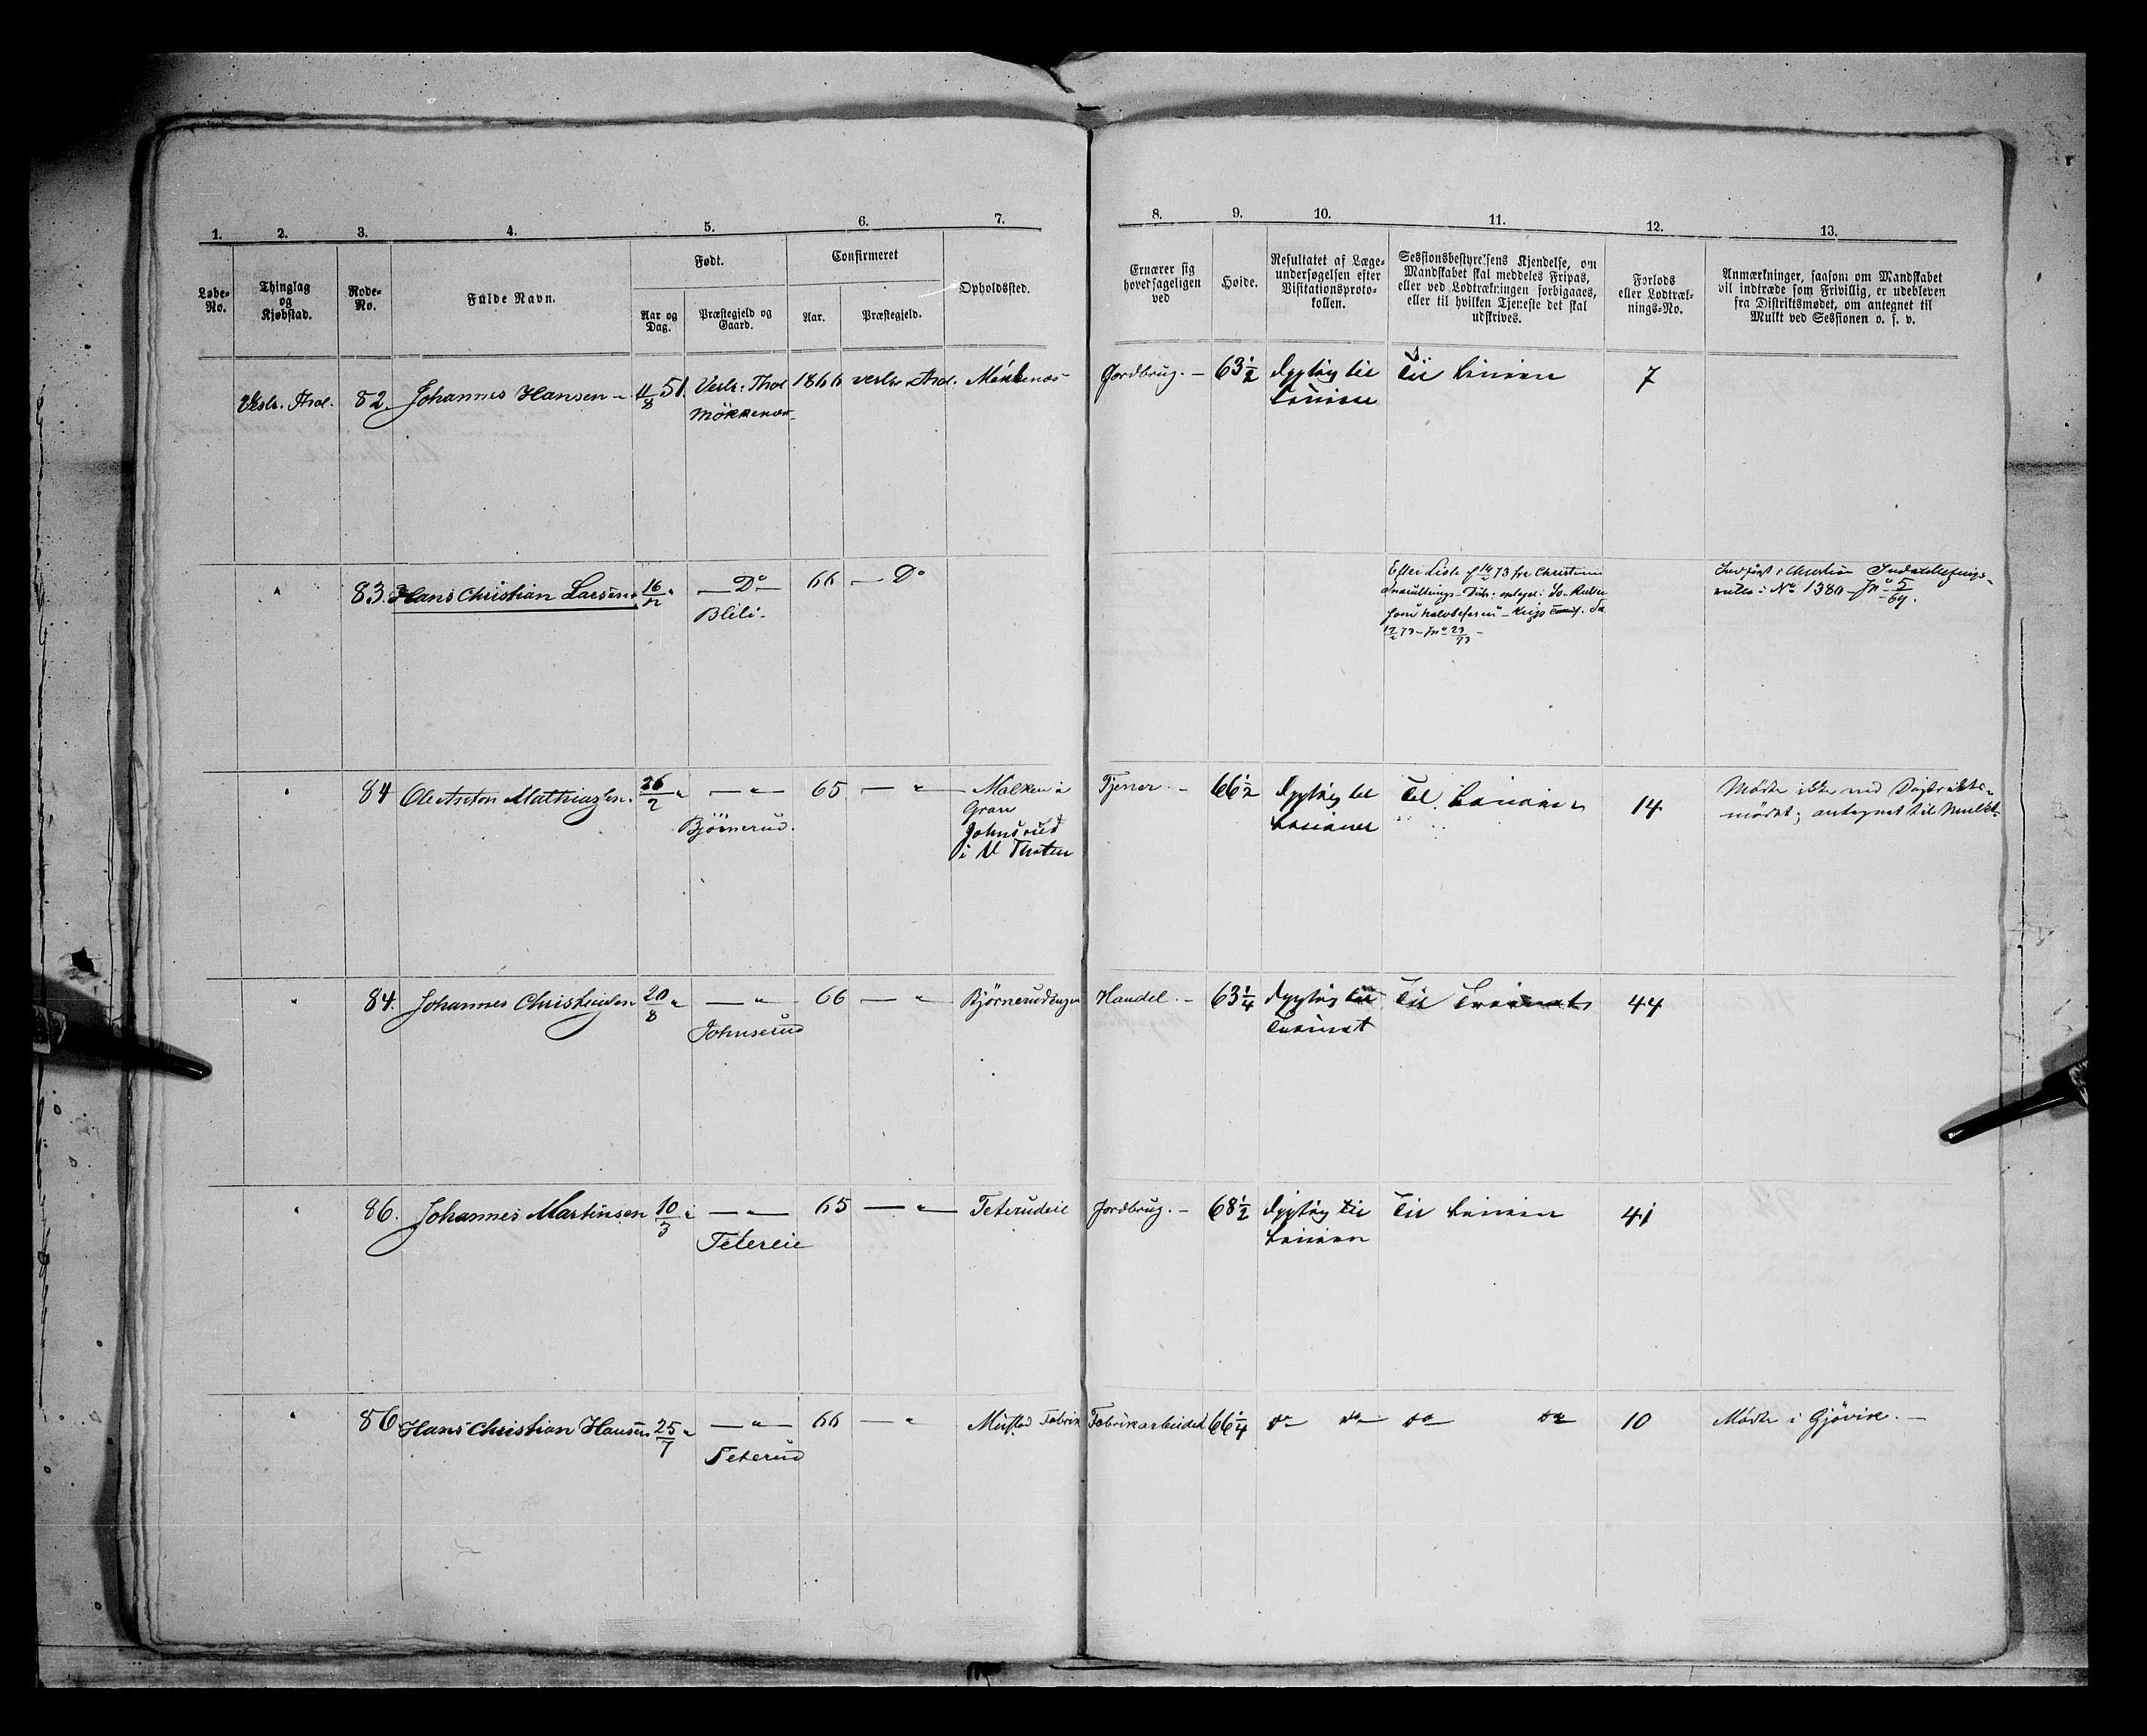 1. 2. 3. 4. 5. 6. 7. 8. 9. 10. 11. 12. 13.
Løbe-No.
Thinglag og Kjøbstad.
Rode-No.
Fulde Navn.
Født.
Aar og Dag.
Præstegjeld og Gaard.
Confirmeret
Aar.
Præstegjeld.
Opholdssted.
Ernærer sig hovedsageligen ved
Høide.
Resultatet af Læge-undersøgelsen efter Visitationsproto-kollen.
Sessionsbestyrelsens Kjendelse, om Mandskabet skal meddeles Fripas, eller ved Lodtrækningen forbigaaes, eller til hvilken Tjeneste det skal udskrives.
Forlods eller Lodtræk-nings-No.
Anmærkninger, saasom om Mandskabet vil indtræde som Frivillig, er udebleven fra Distriktsmødet, om antegnet til Mulkt ved Sessionen o. s. v.
Vestr. Thot. 82. Johannes Hansen 11/8 51. Vestr. Thot 1866 vestre Thot. Jordbrug. 63 1/2 Dygtig til Linien Til Linien 7
83. Hans Christian Larsen 16/12 " — Do — 66 — Do
Blili.
Efter Liste f 14/2 73 fra Christiania
17/2 73 – Jno 23/73
No 1380 – Jno 5/69.
" 84 Ole Anton Mathiasen. 26/2 " — " — 65 — " — Tjener. 66 1/2 Dygtig til Linien Til Linien 14 Mødte ikke ved Distrikts-
Bjørnerud. Gran mødet; antegnet til Mulkt.
Johnsrud
i V Thoten
" 84. Johannes Christensen 20/8 " — " — 66 — " Bjørnerudengen Handel. 63 1/4 Dygtig til Trainet Til Trainet 44
Johnserud
" 86. Johannes Martinsen 10/3 " — " — 65 — " — Teterudeie Jordbrug. 68 1/2 Dygtig til Linien Til Linien 41
Tetereie
" 86 Hans Christian Hansen 25/7 " — " — 66 — " Mustad Fabrik Fabrikarbeider 66 1/4 do do do do 10 Mødte i Gjøvik.
Teterud